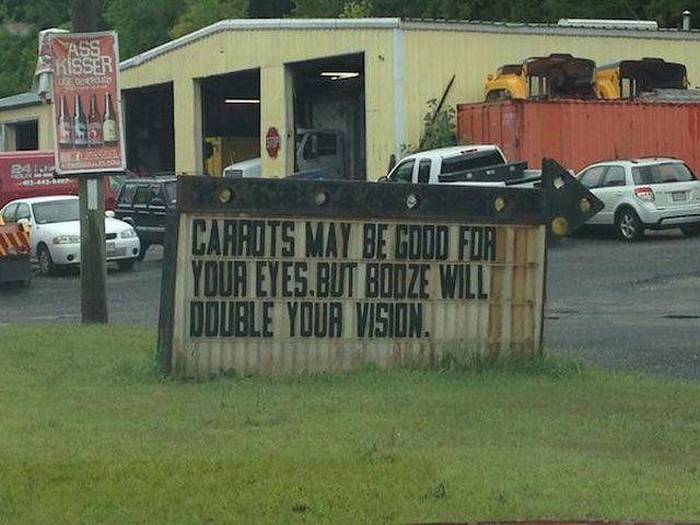 ASS
KISSER
CARROTS MAY BE GOOD FOR
YOUR EYES.BUT BOOZE WILL
DOUBLE YOUR VISION.
STOP
24